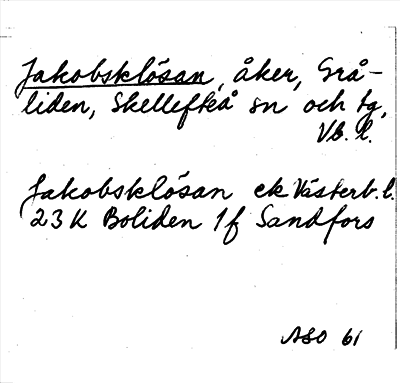 Jakobsklösan, åker, Grå-
liden, Skellefteå sn och tg,
Vb. l.
Jakobsklösan ek Västerb. l.
23 K Boliden 1f Sandfors
ASO 61